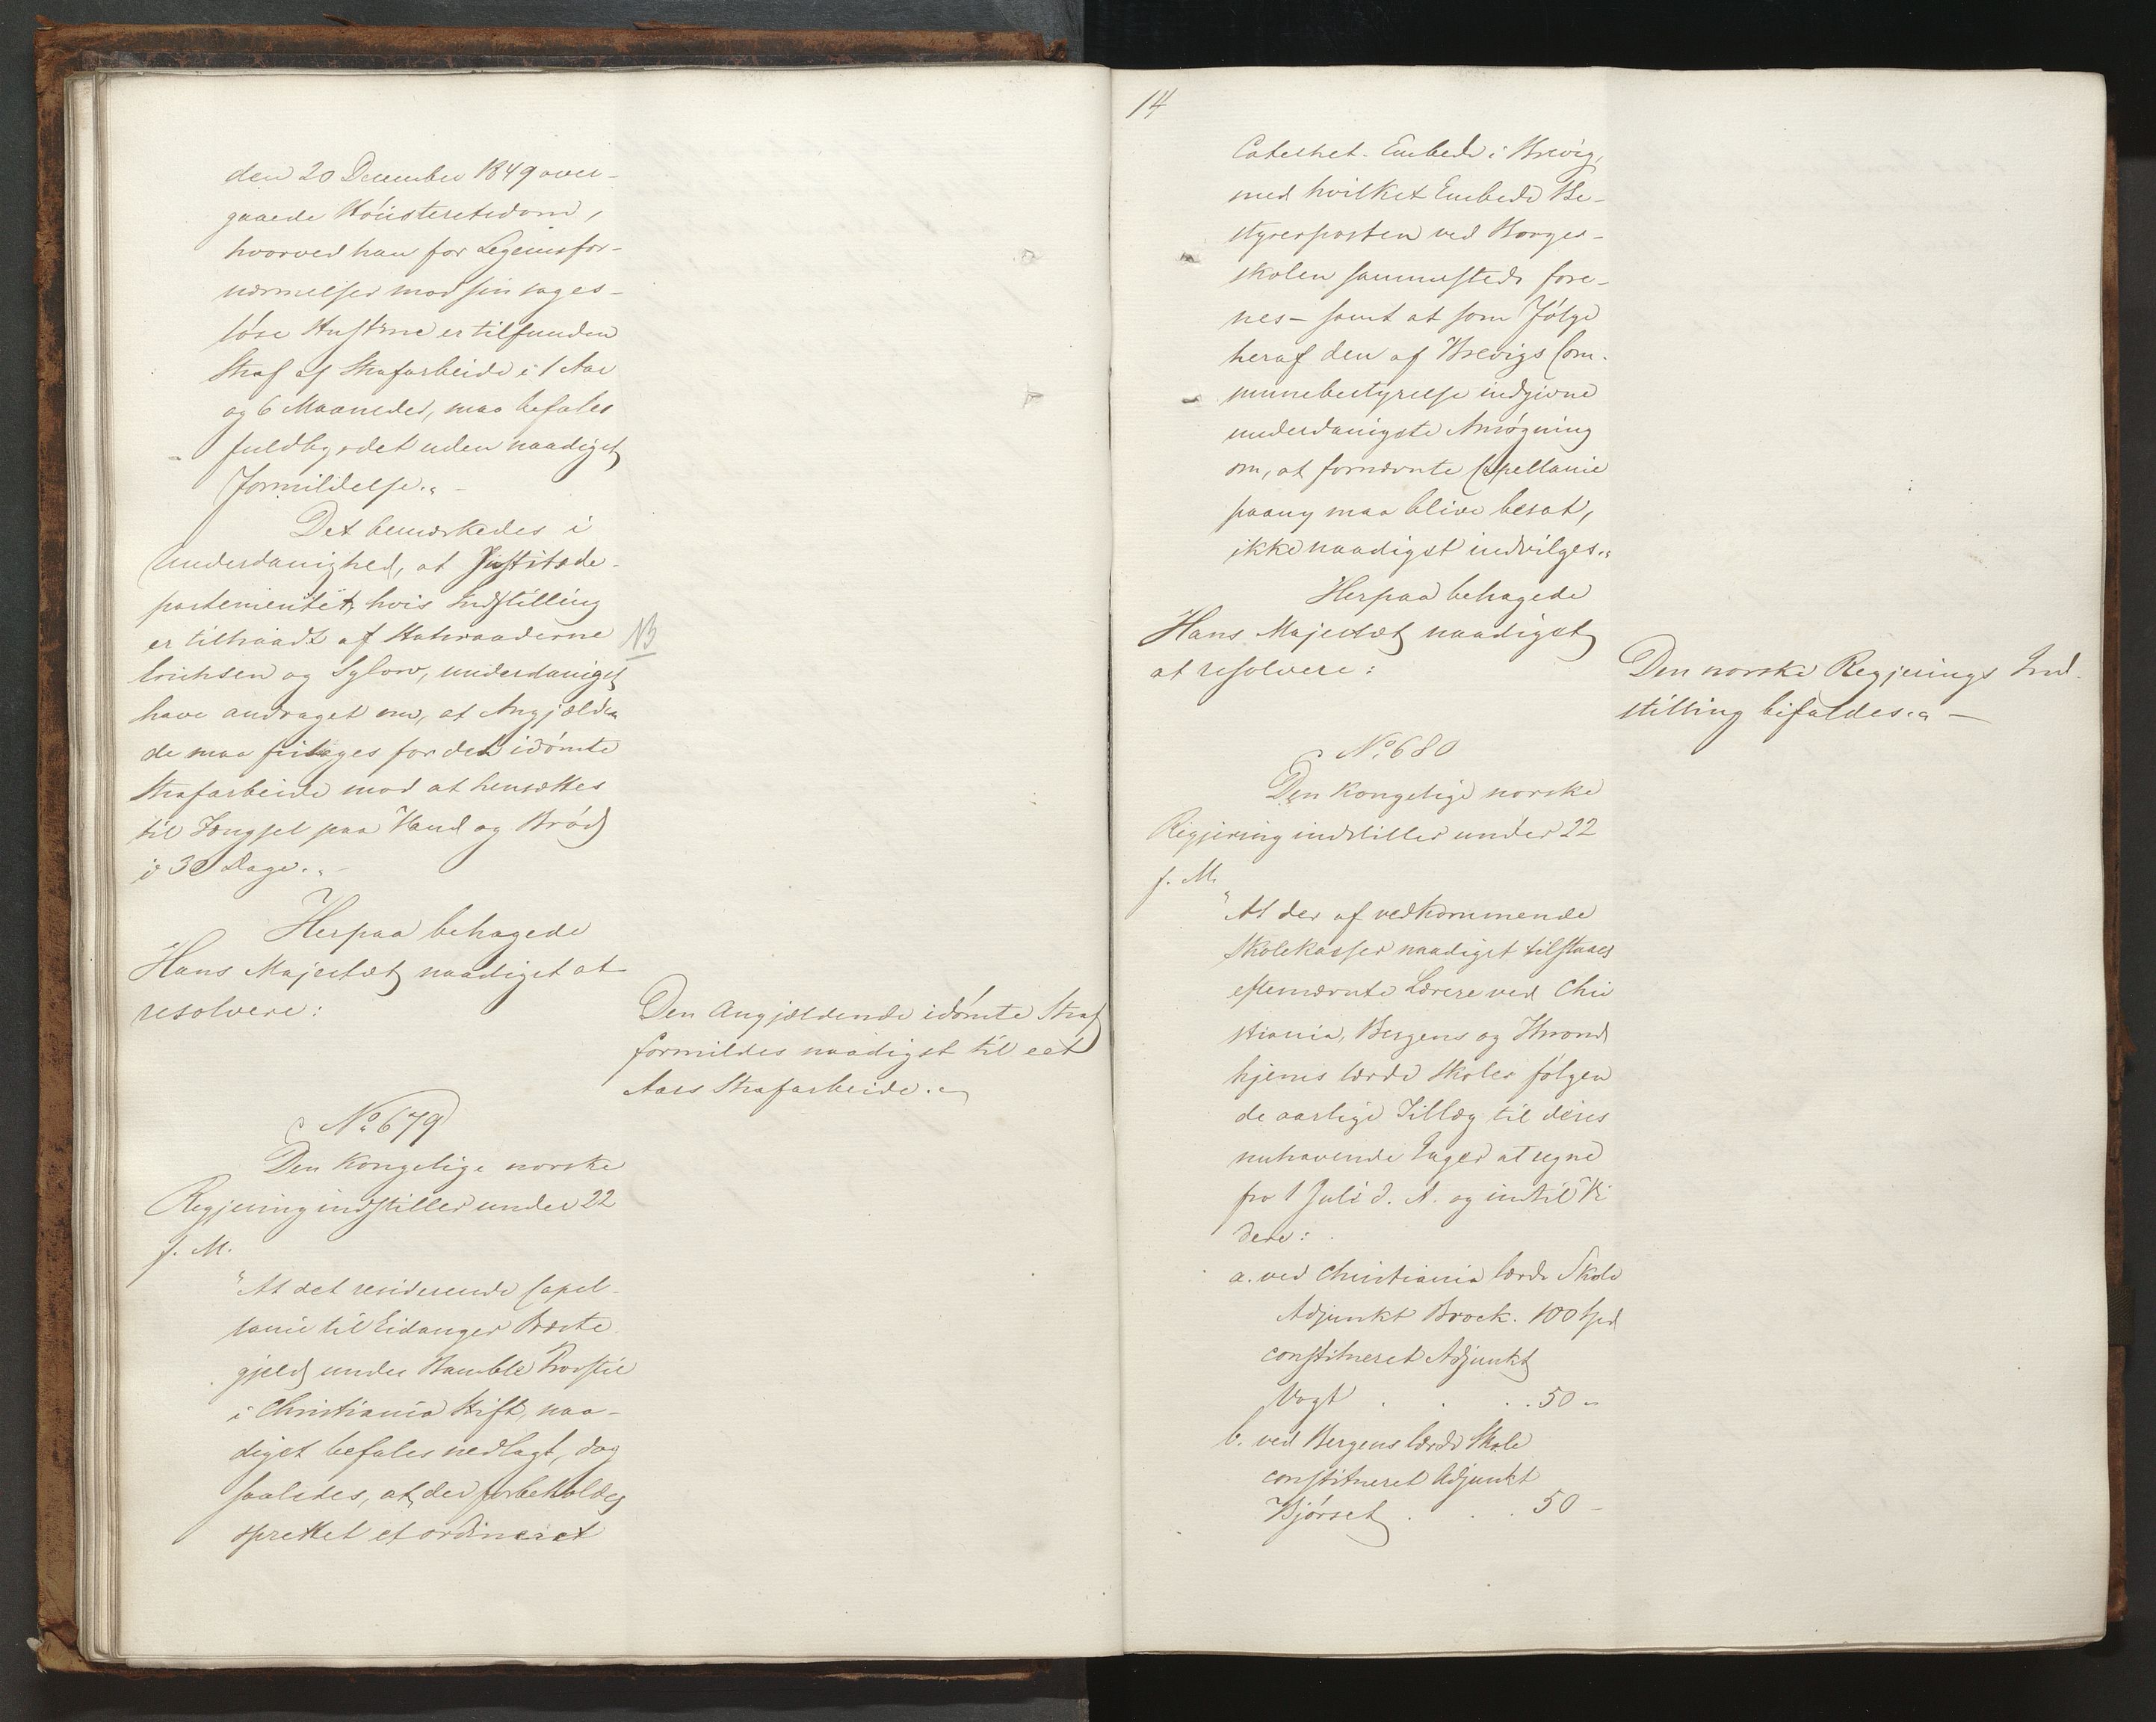 den 20 December 1849 over-
gaaede Høiesteretsdom,
hvorved han for Legemsfor-
nærmelser mod sin sages-
løse Hustrue er tilfunden
Straf af Strafarbeide i 1 Aar
og 6 Maaneder, maa befales
fuldbyrdet uden naadigst
Formildelse.“ –
Det bemærkedes i
Underdanighed, at Justitsde-
partementet, hvis Indstilling
er tiltraadt af Statsraaderne
NB
Erichsen og Sylow, underdanigst
have andraget om, at Angjælden
de maa fritages for det idømte
Strafarbeide mod at hensættes
til Fængsel paa Vand og Brød
i 30 Dage.“ –
Herpaa behagede
Hans Majestæt naadigst at
resolvere:
Den Angjældende idømte Straf
formildes naadigst til eet
Aars Strafarbeide.“
No. 679
Den Kongelige norske
Regjering indstiller under 22
f. M.
“At det residerende Capel-
lanie til Eidanger Præste-
gjeld under Bamble Provstie
i Christiania Stift, naa-
digst befales nedlagt, dog
saaledes, at der forbeholdes
oprettet et ordineret
14
Catechet-Embede i Brevig,
med hvilket Embede Be-
styrerposten ved Borger-
skolen sammesteds fore-
nes – samt at som Følge
heraf den af Brevigs Com-
munebestyrelse indgivne
underdanigste Ansøgning
om, at fornævnte Capellanie
paany maa blive besat,
ikke naadigst indvilges.“
Herpaa behagede
Hans Majestæt naadigst
at resolvere:
Den norske Regjerings Ind-
stilling bifaldes.“ –
No. 680
Den Kongelige norske
Regjering indstiller under 22
f. M.
“At der af vedkommende
Skolekasser naadigst tilstaaes
efternævnte Lærere ved Chri
stiania, Bergens og Thrond
hjems lærde Skoler følgen
de aarlige Tillæg til deres
nuhavende Gager at regne
fra 1 Juli d. A. og indtil Vi
dere:
a. ved Christiania lærde Skole
Adjunkt Brock. 100 Spd
constitueret Adjunkt
Vogt . . . . 50 "
b. ved Bergens lærde Skole
constitueret Adjunkt
Bjørset . . . 50 –